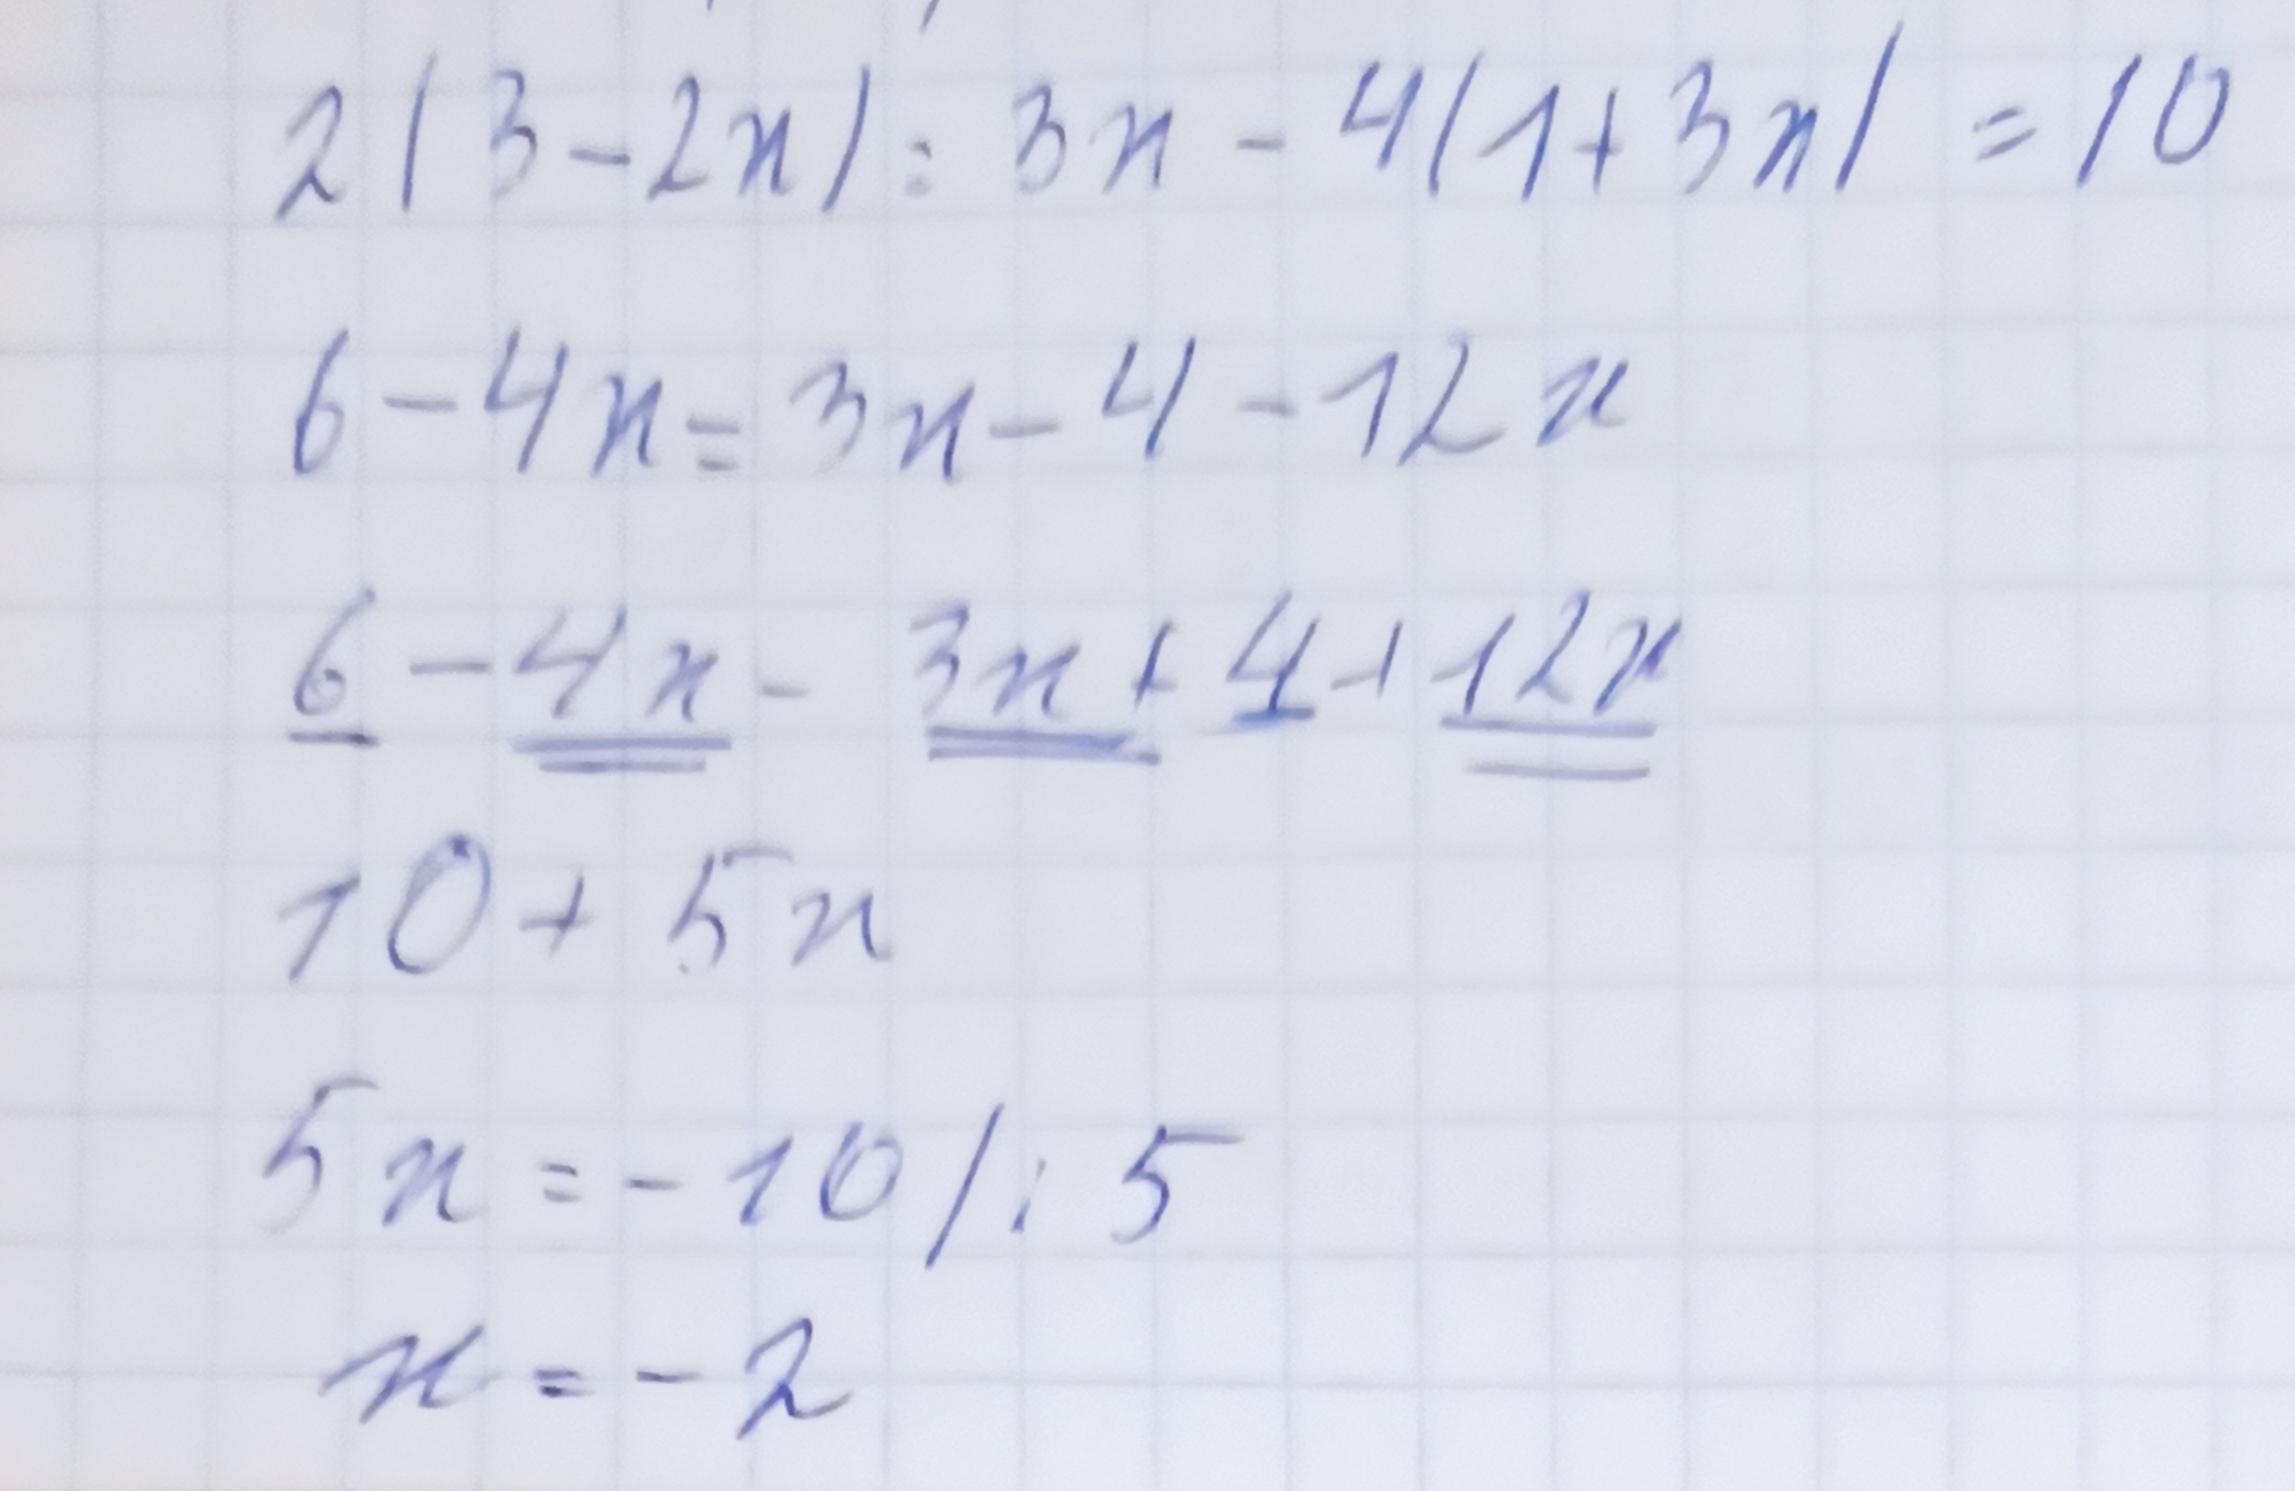 2(3-2x) = 3x - 4(1+3x) = 10
6 - 4x = 3x - 4 - 12x
6 - 4x - 3x + 4 + 12x
10 + 5x
5x = -10 / : 5
x = -2